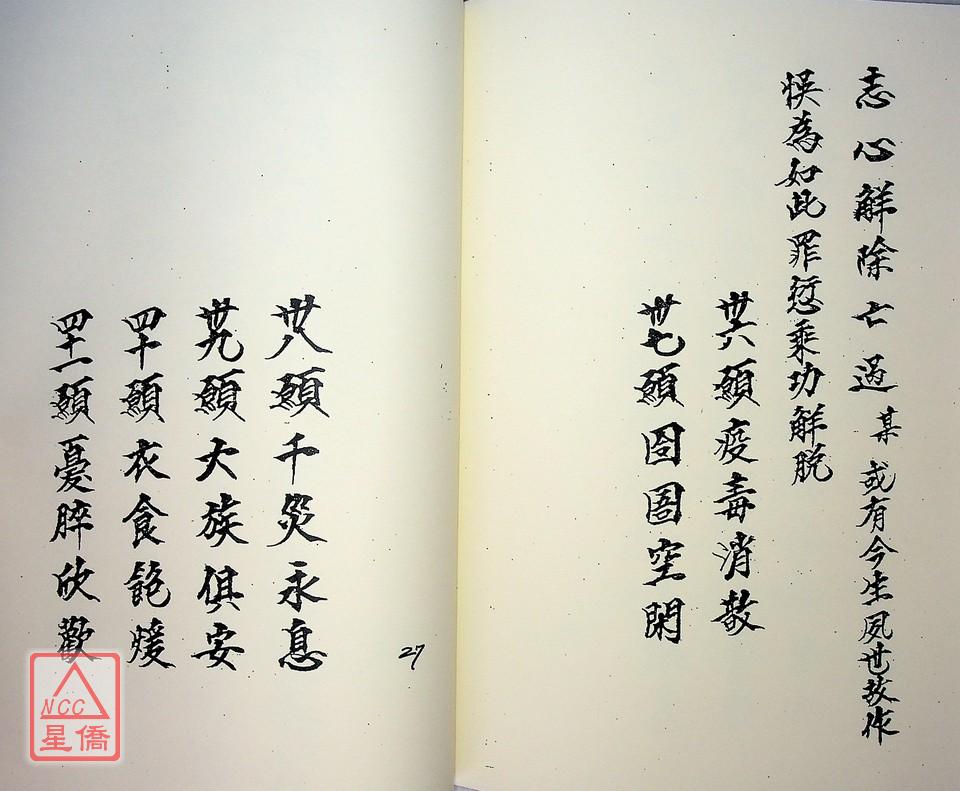 志心解除亡過某或有今生夙世故作
悞為如此罪愆乘功解脫
卅六願疫毒消散
卅七願囹圄空閑
卅八願千災永息
卅九願大族俱安
四十願衣食飽煖
四十一願憂瘁欣歡
27
NCC
星僑